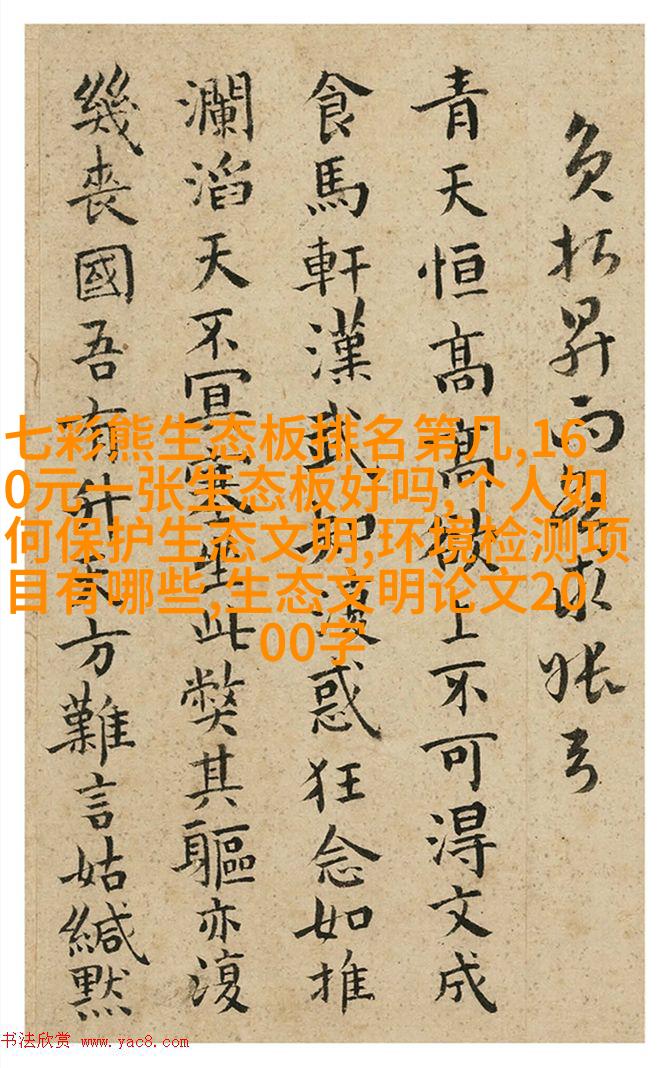 昇而求
青天恒髙髙欲上不可淂文成
食馬軒漢武如復惑狂念如推
瀾滔天不冥坐此弊其軀亦復
幾喪國吾有升天方難言姑緘默
七彩熊生态板排名第几,16
0元一张生态板好吗,个人如
何保护生态文明,环境检测项
目有哪些,生态文明论文20
00字
书法欣赏 www.yac8.com